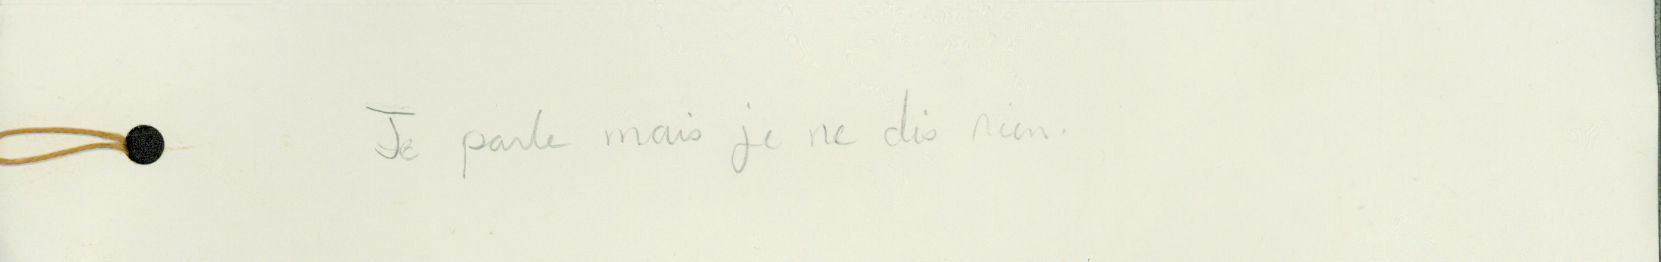 Je parle mais je ne dis rien.